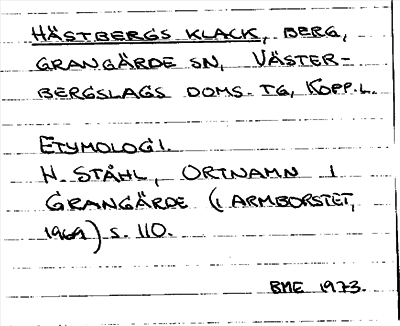 HÄSTBERGS KLACK, BERG,
GRANGÄRDE SN, VÄSTER-
BERGSLAGS DOMS. TG, KOPP.L.
ETYMOLOGI.
H. STÅHL, ORTNAMN I
GRANGÄRDE (I ARMBORSTET,
1969) S. 110.
BME 1973.